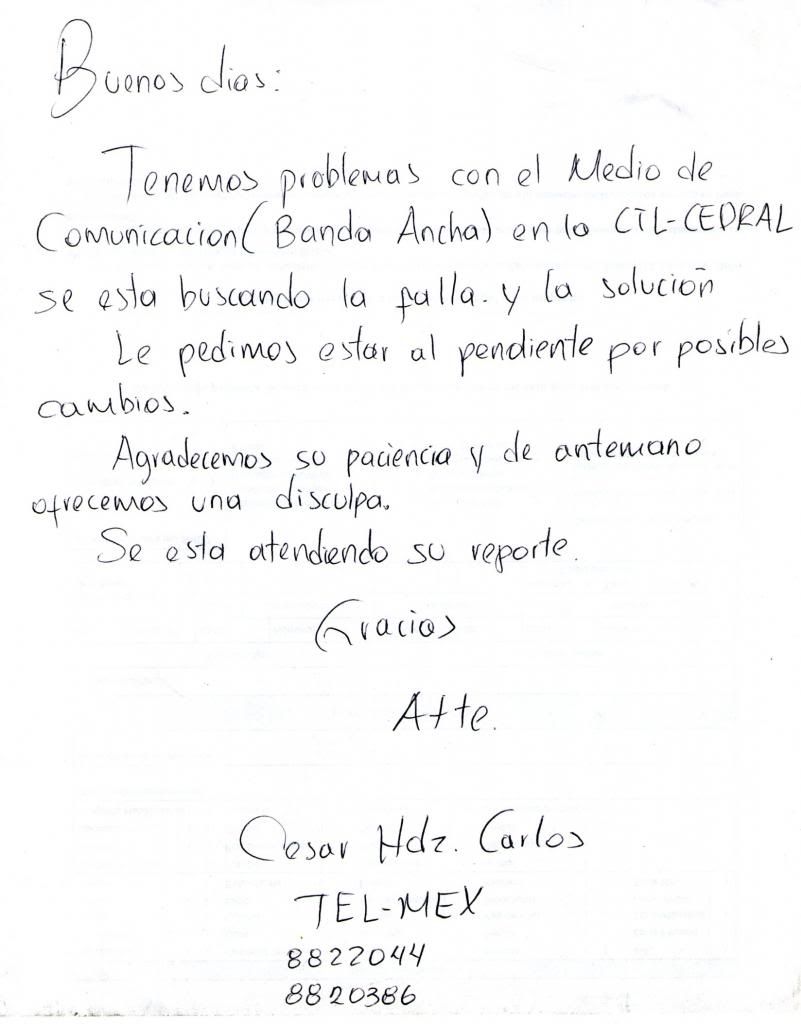 Buenos dias:
Tenemos problemas con el Medio de
Comunicacion (Banda Ancha) en la CTL-CEDRAL
se esta buscando la falla. y la solución
Le pedimos estar al pendiente por posibles
cambios.
Agradecemos su paciencia y de antemano
ofrecemos una disculpa.
Se esta atendiendo su reporte.
Gracias
Atte.
Cesar Hdz. Carlos
TEL-MEX
8822044
8820386